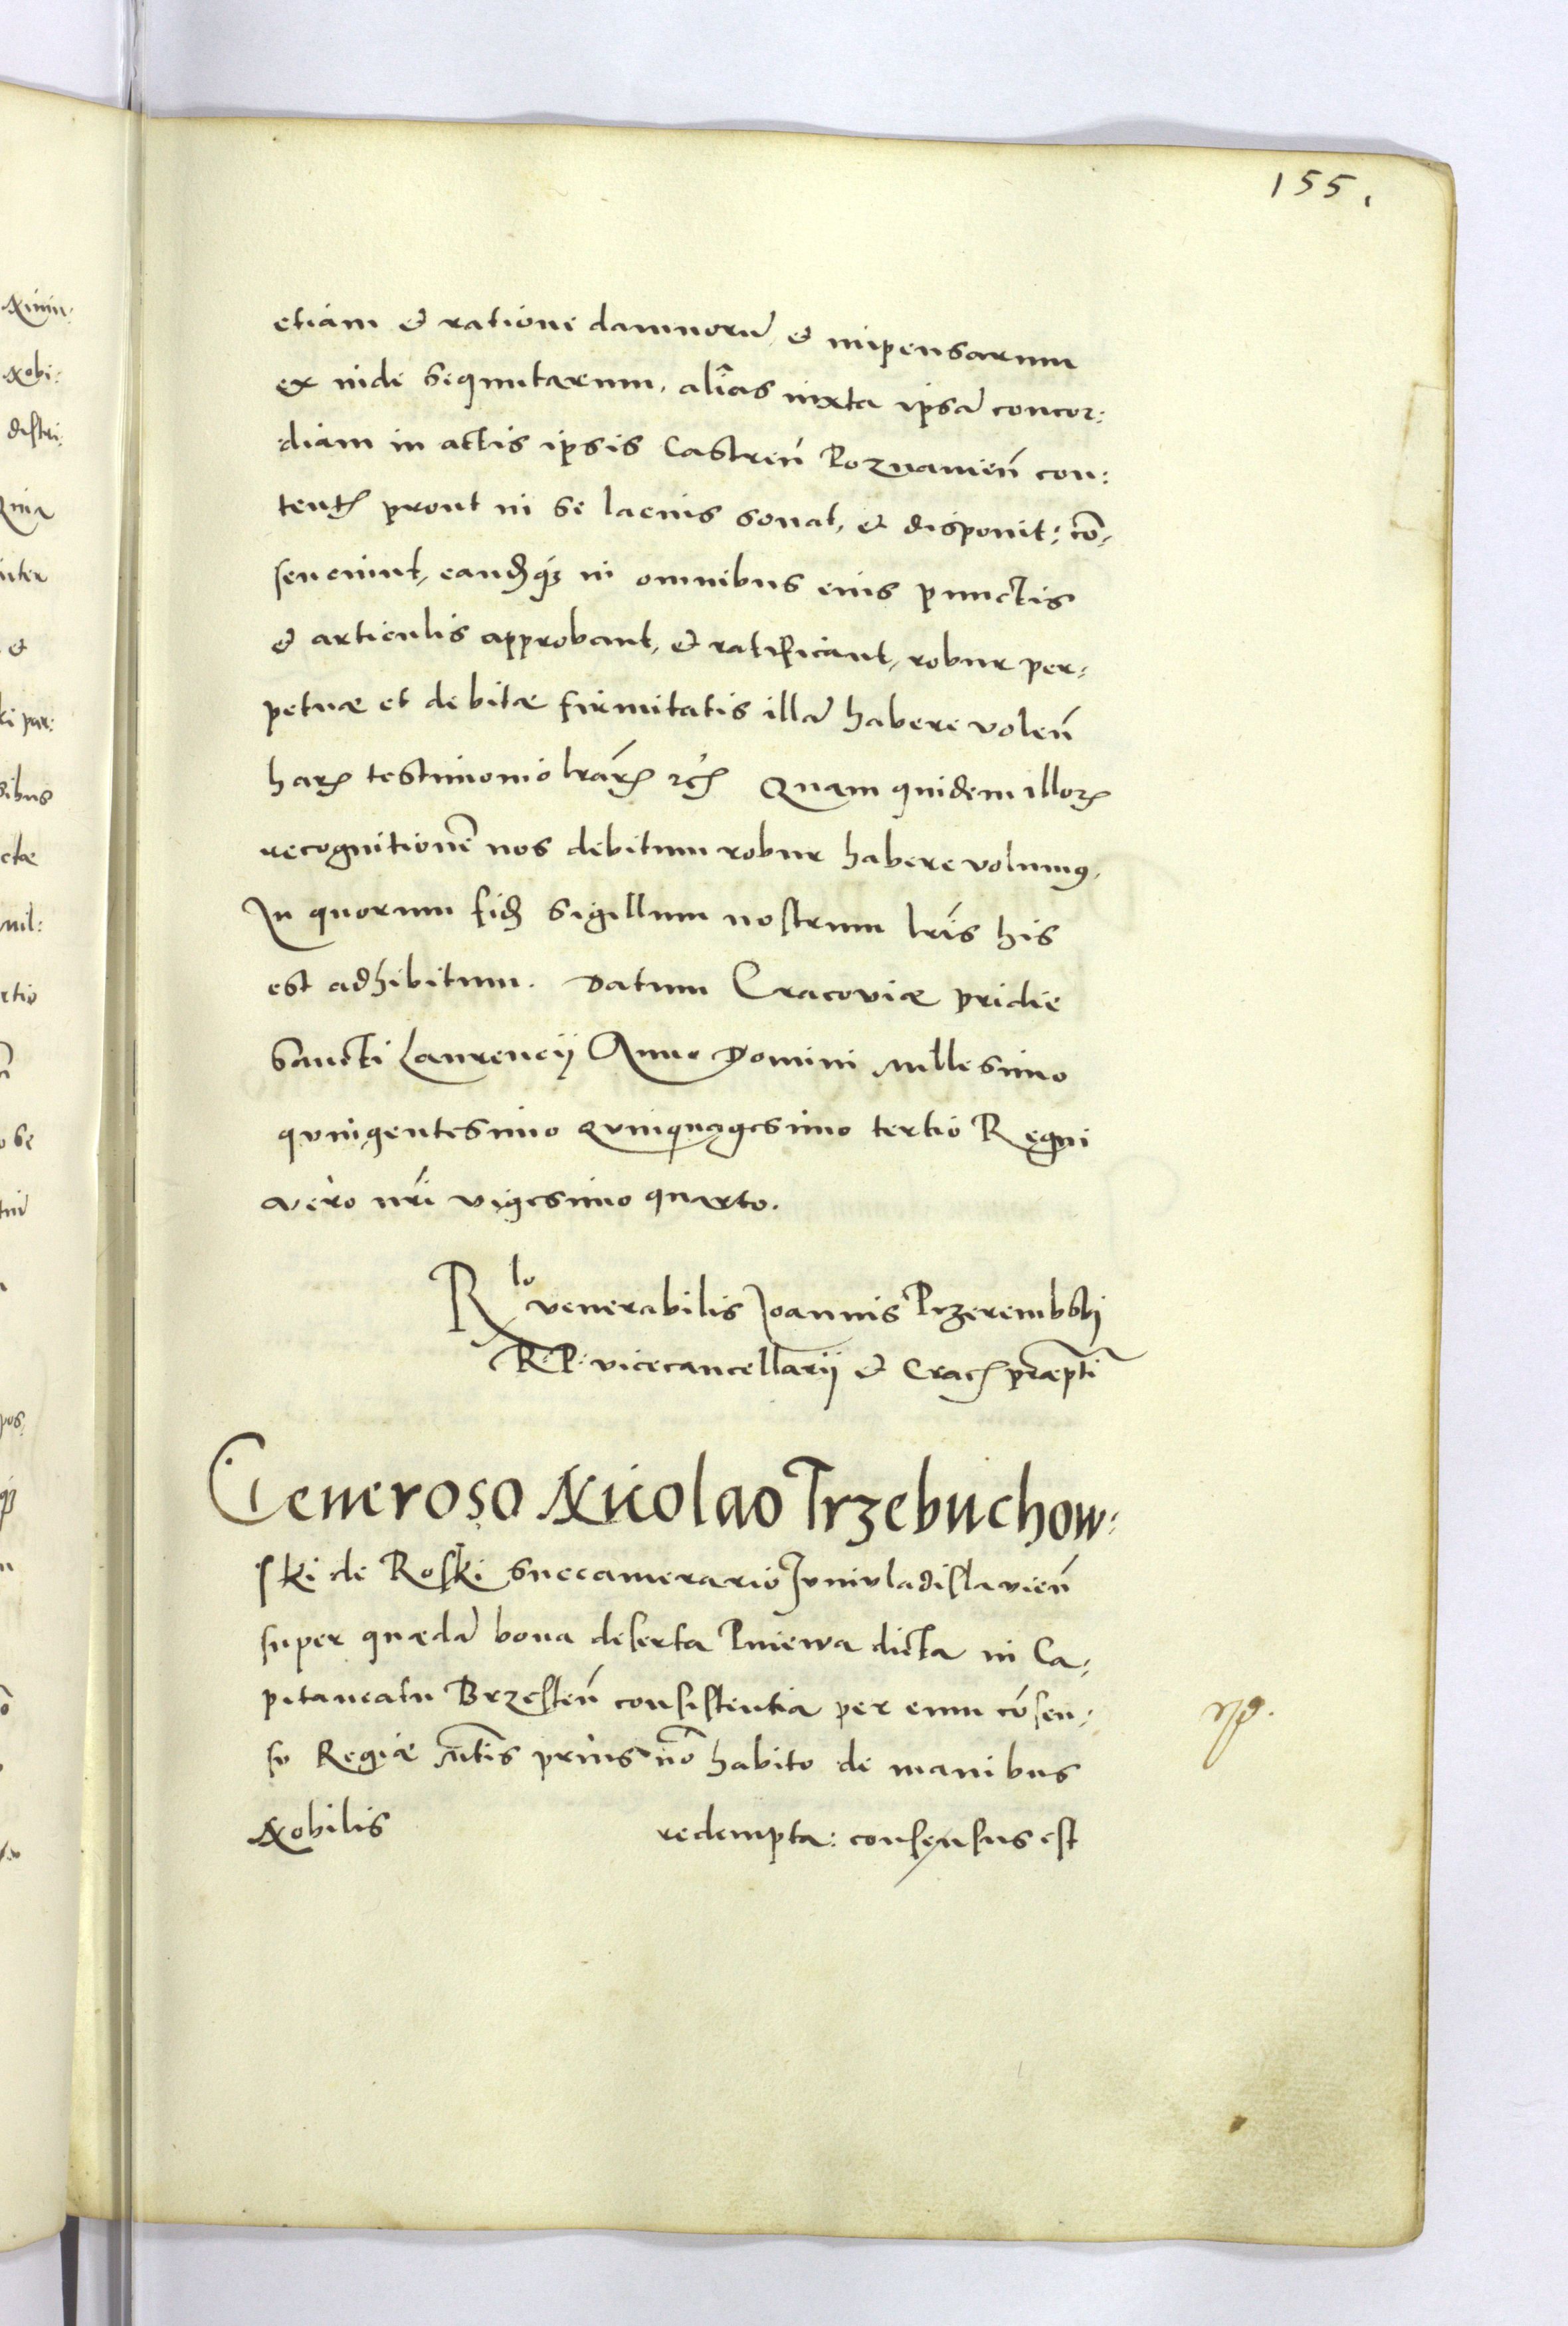 155.
etiam et ratione damnorũ et impensarum
ex inde sequutarum, alĩas iuxta ipsã concor:
diam in actis ipsis Castreñ Poznamieñ con:
tentꝭ prout in se lacius sonat, et disponit: cõ:
senerunt, eandꝫ in omnibus eius punctis
et articulis approbant, et ratificant, robur per:
petuæ et debitæ firmitatis illã habere voleñ
harꝝ testimonio lrãrꝝ &cꝭ Quam quidem illorꝝ
recognitionẽ nos debitum robur habere volumꝰ.
In quorum fidꝫ sigillum nostrum lrĩs his
est adhibitum. Datum Cracoviæ pridie
Sancti Laurencij Anno Domini Millesimo
quingentesimo quinquagesimo tertio Regni
vero nrĩ vigesimo quarto.
R lo venerabilis Joannis Przerembski
R: P: vicecancellarij et Cracꝭ præpti
Generoso Nicolao Trzebuchow:
ski de Roski Succamerario Juniuladislavieñ
super quædã bona deserta Pniewa dicta in Ca:
pitaneatu Brzesteñ consistentia per eum cõsen:
su Regiæ Mtis prius nõ habito de manibus
Nobilis redempta: consensus est